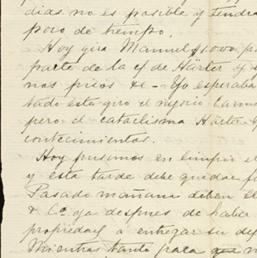 dias no es posible y tendra
poco de tiempo.
Hoy gira Manuel $1000 po
parte de la cf de Härter y
nas picos &c - Yo esperaba
tado este giro el negocio
pero el cataclisma Härter
contecimientos.
Hoy pusimos en limpio el
y esta tarde debe quedar f
Pasado mañana deben el
& Co. ya despues de haber
propiedad á entregar su de
Mientras tanto para que n